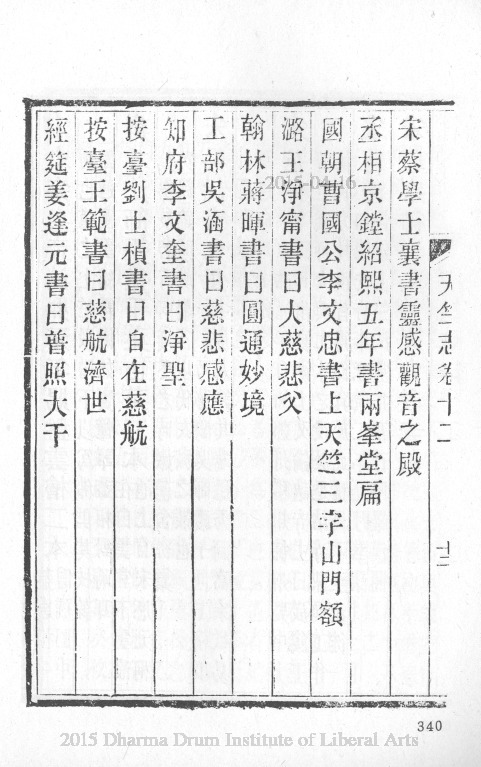 天竺志卷十二
十三
宋蔡學士襄書靈感觀音之殿
丞相京鏜紹熙五年書兩峯堂扁
國朝曹國公李文忠書上天竺三字山門額
潞王淨甯書曰大慈悲父
翰林蔣暉書曰圓通妙境
工部吳涵書曰慈悲感應
知府李文奎書曰淨聖
按臺劉士楨書曰自在慈航
按臺王範書曰慈航濟世
經筵姜逢元書曰普照大千
340
2015-04-16
2015 Dharma Drum Institute of Liberal Arts